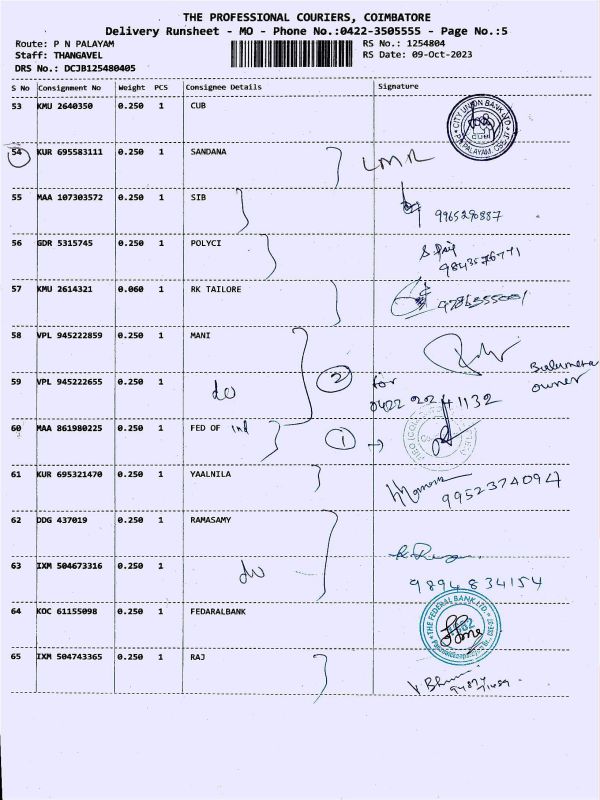 THE PROFESSIONAL COURIERS, COIMBATORE
Delivery Runsheet - MO - Phone No.:0422-3505555 - Page No.:5
Route: P N PALAYAM
RS No.: 1254804
Staff: THANGAVEL
RS Date: 09-Oct-2023
DRS No.: DCJB125480405
S No Consignment No Weight PCS Consignee Details Signature
53 KMU 2640350 0.250 1 CUB
CITY UNION BANK LTD
54 KUR 695583111 0.250 1 SANDANA
55 MAA 107303572 0.250 1 SIB
9965290887
56 GDR 5315745 0.250 1 POLYCI
57 KMU 2614321 0.060 1 RK TAILORE
58 VPL 945222859 0.250 1 MANI
owner
59 VPL 945222655 0.250 1 do 2 for
60 MAA 861980225 0.250 1 FED OF Ind 1
61 KUR 695321470 0.250 1 YAALNILA
9952374094
62 DDG 437019 0.250 1 RAMASAMY
63 IXM 504673316 0.250 1 do
9894834154
64 KOC 61155098 0.250 1 FEDARALBANK
THE FEDERAL BANK LTD.
65 IXM 504743365 0.250 1 RAJ